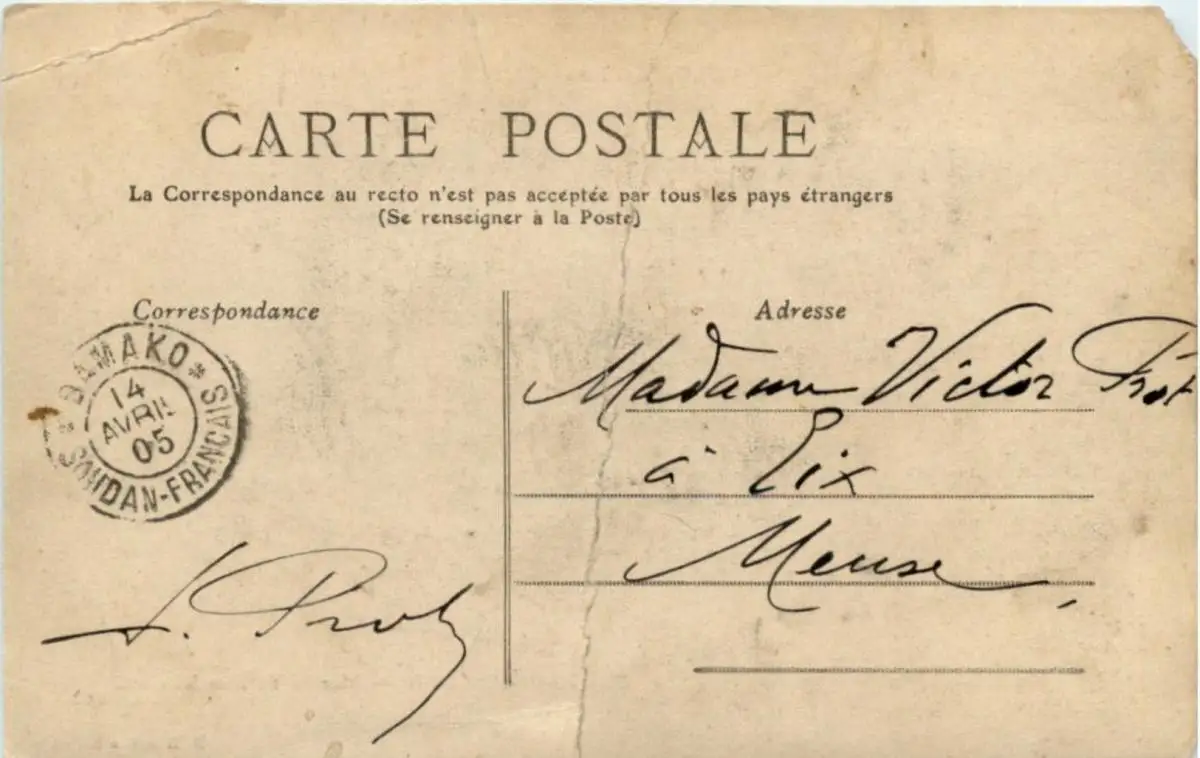 CARTE POSTALE
La Correspondance au recto n'est pas acceptée par tous les pays étrangers
(Se renseigner à la Poste)
Correspondance
Adresse
BAMAKO
14
AVRIL
05
SOUDAN-FRANCAIS
Madame Victor Frot
à Eix
Meuse